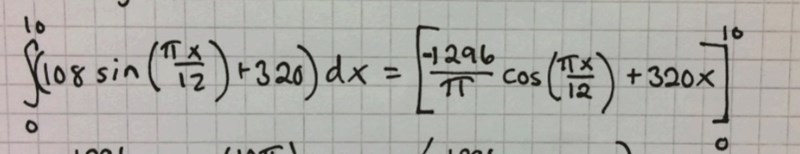 ∫₀¹⁰ (108 sin(πx/12) + 320) dx = [-1296/π cos(πx/12) + 320x]₀¹⁰